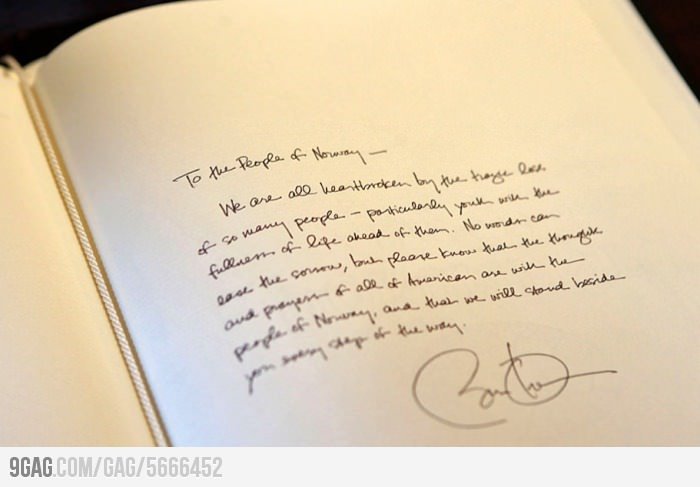 To the People of Norway —
We are all heartbroken by the tragic loss
of so many people - particularly youth with the
fullness of life ahead of them. No words can
ease the sorrow, but please know that the thoughts
and prayers of all of American are with the
people of Norway, and that we will stand beside
you every step of the way.
9GAG.COM/GAG/5666452